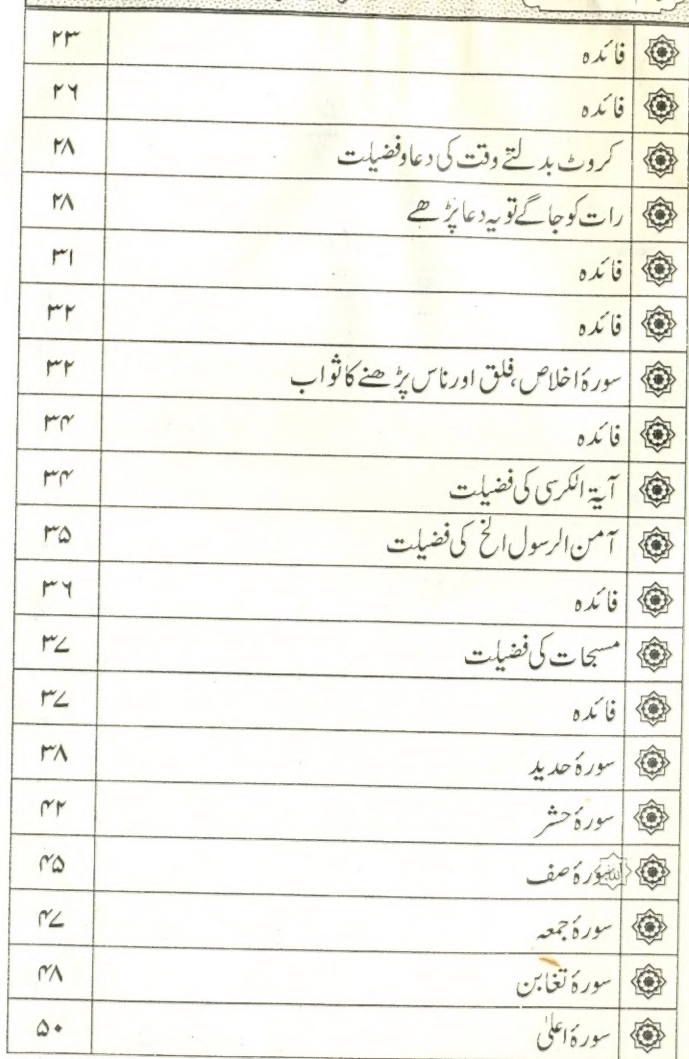 فائدہ ۲۳
فائدہ ۲۶
کروٹ بدلتے وقت کی دعا وفضیلت ۲۸
رات کو جاگے تو یہ دعا پڑھے ۲۸
فائدہ ۳۱
فائدہ ۳۲
سورۂ اخلاص، فلق اور ناس پڑھنے کا ثواب ۳۲
فائدہ ۳۴
آیۃ الکرسی کی فضیلت ۳۴
آمن الرسول الخ کی فضیلت ۳۵
فائدہ ۳۶
مسبحات کی فضیلت ۳۷
فائدہ ۳۷
سورۂ حدید ۳۸
سورۂ حشر ۴۲
سورۂ صف ۴۵
سورۂ جمعہ ۴۷
سورۂ تغابن ۴۸
سورۂ اعلیٰ ۵۰